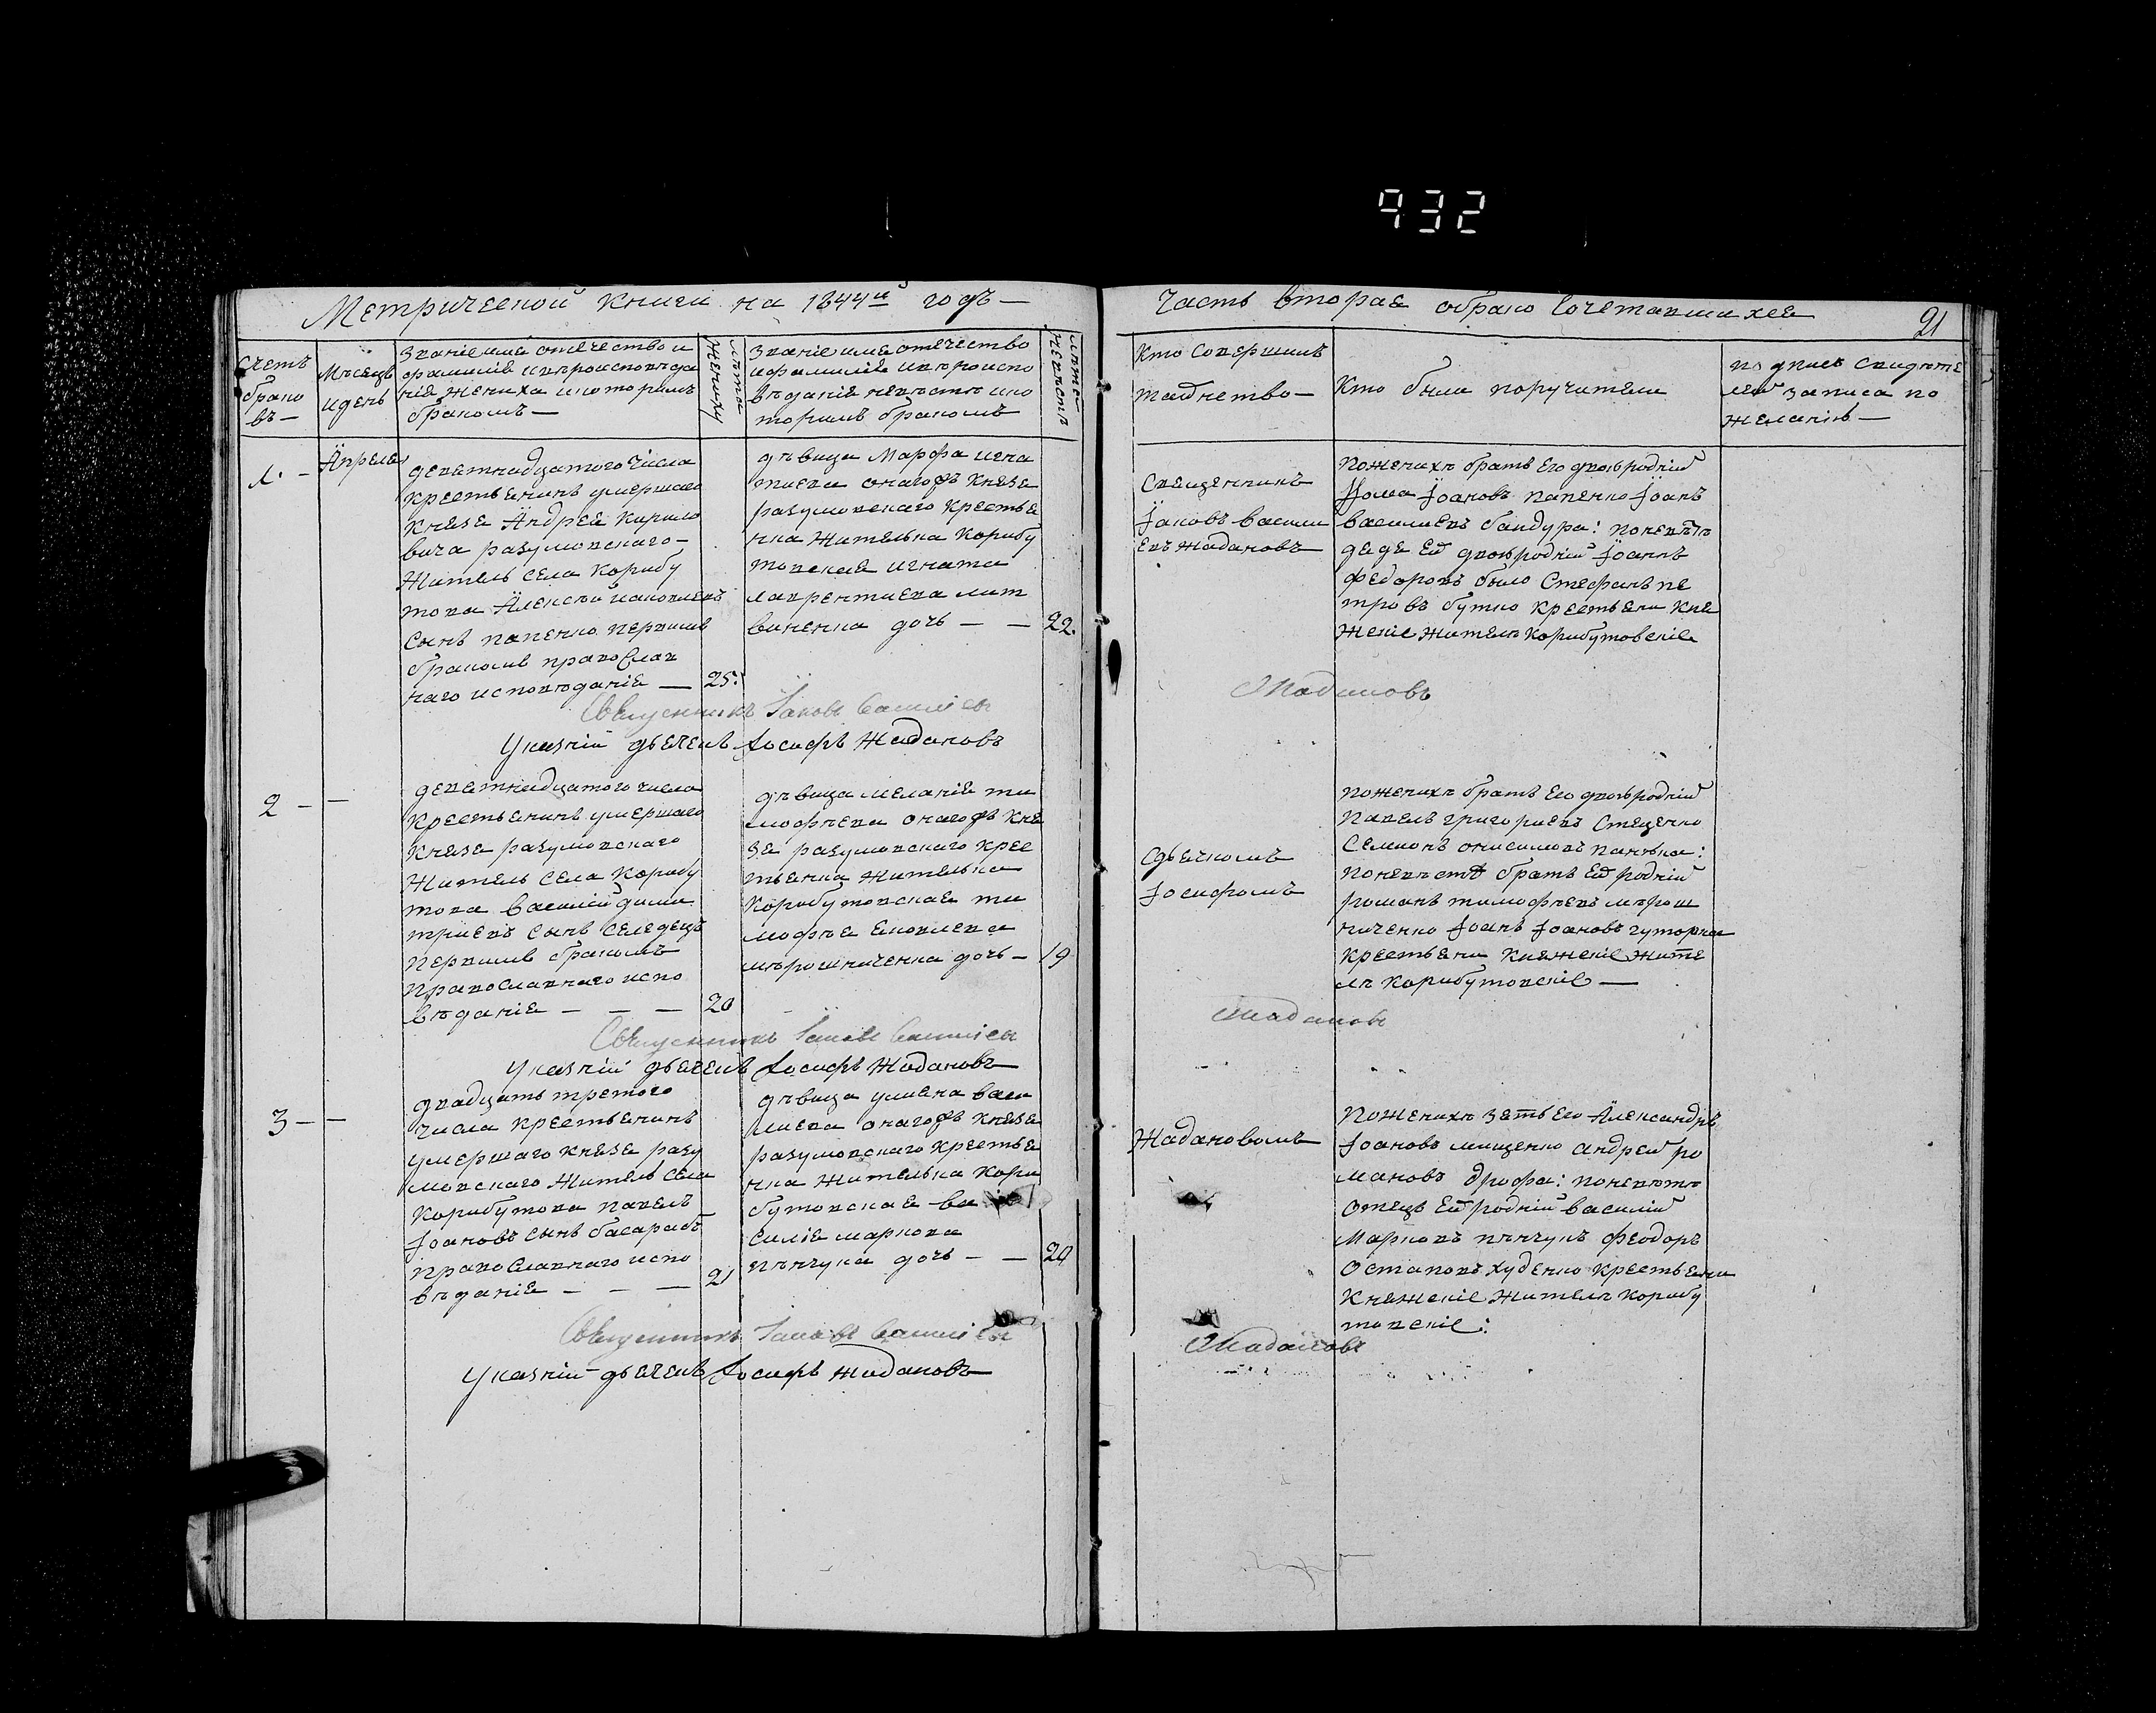 932
Метрической книги на 1844й годъ —
Часть вторая о брако сочетавшихся
21
Счетъ
брако
въ —
Мѣсяцъ
и день
Званіе имя отечество и
фамиліе и вѣроисповѣда
ніе жениха и которимъ
бракомъ —
лѣта
жениху
Званіе имя отечество
и фамиліе и вѣроиспо
вѣданіе невѣсти и ко
торимъ бракомъ
лѣта
невѣстѣ
Кто совершилъ
таинство —
Кто были поручители
подпись свидѣте
лей записа по
желанію —
1. —
Апреля
деветнадцатого числа
крестьянинъ умершаго
Князя Андрея Кирило
вича разумовскаго —
житель села Корибу
това Алексѣй
сынъ папенко первимъ
бракомъ православ
наго исповѣданія — 25.
дѣвица Марфа игна
тиева онагожъ Князя
разумовскаго крестья
нка жителька Корибу
товская игната
лаврентиева лит
виненка дочь — — 22.
Священникъ
Іаковъ Васили
евъ Жадановъ
По женихѣ братъ его двоюродній
Фома Іоановъ папенко Іоанъ
василиевъ бандура: по невѣстѣ
дядя ей двоюродній Іоаннъ
федоровъ было Стефанъ пе
тровъ бутко крестьяни кня
жеміе жители Корибутовскіе
Священникъ Іаковъ Василіевъ
Жадановъ
Указній дьячекъ Іосифъ Жадановъ
2 — —
деветнадцатого числа
крестьянинъ умершаго
Князя разумовскаго
житель села Корибу
това василій дими
триевъ сынъ селедецъ
первимъ бракомъ
православнаго испо
вѣданія — — — 20
дѣвица меланія ти
мофѣева онагожъ кня
зя разумовскаго крес
тьянка жителька
Корибутовская ти
мофѣя яковлева
мѣрошниченка дочь — 19
Сдьячкомъ
Іосифомъ
По женихѣ братъ его двоюродній
Павелъ григориевъ Стеценко
Семионъ онисимовъ панѣка:
По невѣстѣ братъ ей родній
романъ тимофѣевъ мѣрош
ниченко Іоанъ Іоановъ гуторка
крестьяни княжескіе жите
лѣ Корибутовскіе —
Священникъ Іаковъ Василіевъ
Жадановъ
Указній дьячекъ Іосифъ Жадановъ
3 — —
двадцать третого
числа крестьянинъ
умершаго князя разу
мовскаго житель села
Корибутова павелъ
Іоановъ сынъ басарабъ
православнаго испо
вѣданія — — — 21
дѣвица улияна васи
лиева онагожъ князя
разумовскаго крестья
нка жителька Кори
бутовская ва
силія маркова
пѣнчука дочь — — 20
Жадановомъ
По женихѣ зять его Александръ
Іоановъ мищенко андрей ро
мановъ дрофа: по невѣстѣ
отецъ ей родній василій
Марковъ пѣнчукъ феодоръ
Остаповъ худенко крестьяни
Княжескіе жителѣ Корибу
товскіе:
Священникъ Іаковъ Василіевъ
Жадановъ
Указній дьячекъ Іосифъ Жадановъ